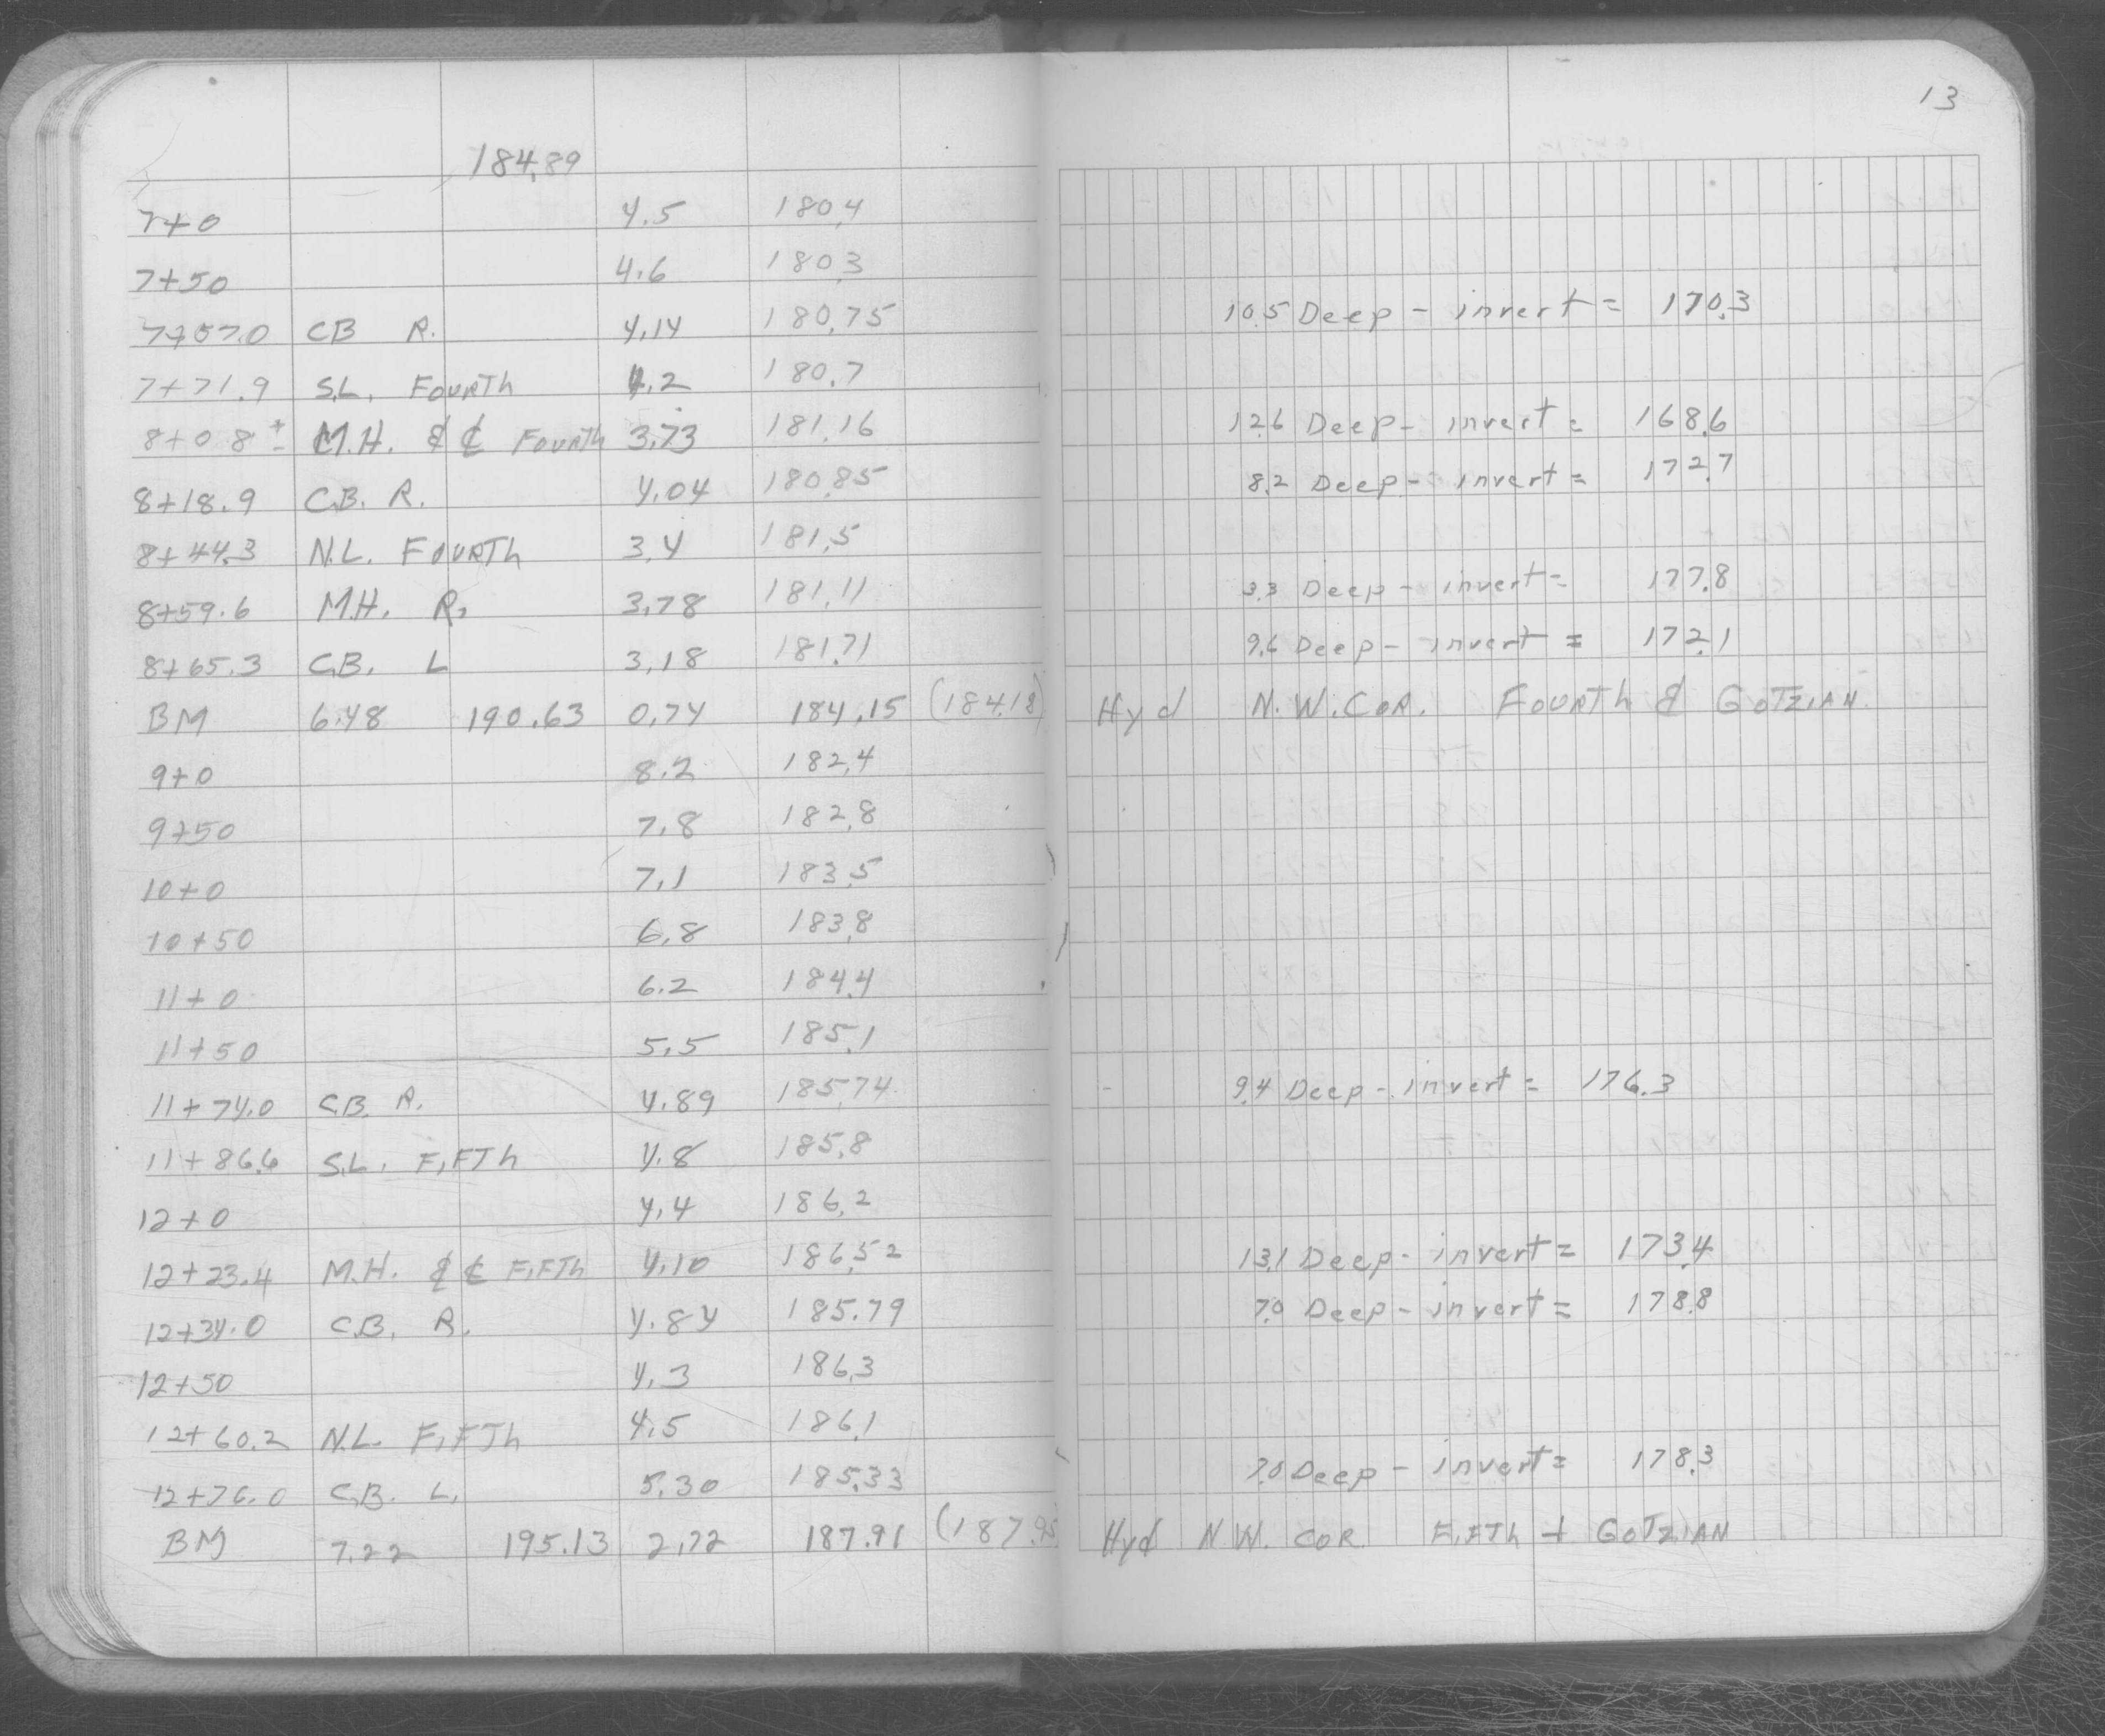 13
184.89
7+0 4.5 180.4
7+50 4.6 180.3
7+57.0 CB R. 4.14 180.75 10.5 Deep - invert = 170.3
7+71.9 S.L. FOURTh 4.2 180.7
8+08 ± M.H. & ℄ FOURTh 3.73 181.16 12.6 Deep - invert = 168.6
8+18.9 C.B. R. 4.04 180.85 8.2 Deep - invert = 172.7
8+44.3 N.L. FOURTh 3.4 181.5
8+59.6 M.H. R. 3.78 181.11 3.3 Deep - invert = 177.8
8+65.3 C.B. L 3.18 181.71 9.6 Deep - invert = 172.1
BM 6.48 190.63 0.74 184.15 (184.18) Hyd N.W. COR. FOURTh & GOTZIAN
9+0 8.2 182.4
9+50 7.8 182.8
10+0 7.1 183.5
10+50 6.8 183.8
11+0 6.2 184.4
11+50 5.5 185.1
11+74.0 C.B. R. 4.89 185.74 9.4 Deep - invert = 176.3
11+86.6 S.L. FIFTh 4.8 185.8
12+0 4.4 186.2
12+23.4 M.H. & ℄ FIFTh 4.10 186.52 13.1 Deep - invert = 173.4
12+34.0 C.B. R. 4.84 185.79 7.0 Deep - invert = 178.8
12+50 4.3 186.3
12+60.2 N.L. FIFTh 4.5 186.1
12+76.0 C.B. L. 5.30 185.33 7.0 Deep - invert = 178.3
BM 7.22 195.13 2.72 187.91 (187.95 Hyd N.W. COR. FIFTh + GOTZIAN